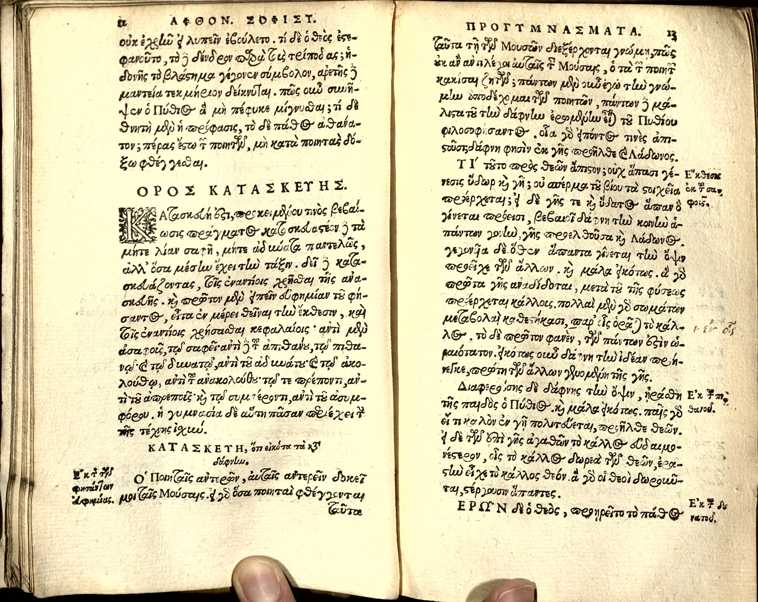 12 ΑΦΘΟΝ. ΣΟΦΙΣΤ.
οὐκ ἐχρῆν εἰ λυπεῖν ἐβούλετο. τί δὲ ὁ θεὸς ἐστε-
φανοῦτο, τὸ δένδρον
δονῆς τὸ βλάστημα γέγονε σύμβολον, ἀρετῆς ἡ
μαντεία τεκμήριον δείκνυται. πῶς οὖν συνῆ-
ψεν ὁ Πύθιος ἃ μὴ πέφυκε μίγνυσθαι; τί δὲ
θνητὴ μὲν ἡ πρόφασις, τὸ δὲ πάθος ἀθάνα-
τον; πέρας ἔστω τῶν ποιητῶν, μὴ κατὰ ποιητὰς δό-
ξω φθέγγεσθαι.
ΟΡΟΣ ΚΑΤΑΣΚΕΥΗΣ.
ΚΑτασκευή ἐστι, προκειμένου τινὸς βεβαί-
ωσις πράγματος. κατασκευαστέον δὲ τὰ
μήτε λίαν σαφῆ, μήτε ἀδύνατα παντελῶς,
ἀλλ' ὅσα μέσην ἔχει τὴν τάξιν. δεῖ δὲ κατα-
σκευάζοντας, τοῖς ἐναντίοις χρῆσθαι τῆς ἀνα-
σκευῆς. καὶ πρῶτον μὲν εἰπεῖν εὐφημίαν τοῦ φή-
σαντος, εἶτα ἐν μέρει θεῖναι τὴν ἔκθεσιν, καὶ
τοῖς ἐναντίοις χρήσασθαι κεφαλαίοις· ἀντὶ μὲν
ἀσαφοῦς, τῷ σαφεῖ· ἀντὶ δὲ τοῦ ἀπιθάνου, τῷ πιθα-
νῷ· καὶ τῷ δυνατῷ, ἀντὶ τοῦ ἀδυνάτου· καὶ τῷ ἀκο-
λούθῳ, ἀντὶ τοῦ ἀνακολούθου· τῷ τε πρέποντι, ἀν-
τὶ τοῦ ἀπρεποῦς· καὶ τῷ συμφέροντι, ἀντὶ τοῦ ἀσυμ-
φόρου. ἡ γυμνασία δὲ αὕτη πᾶσαν περιέχει τὴν
τῆς τέχνης ἰσχύν.
ΚΑΤΑΣΚΕΥΗ, ὅτι εἰκότα τὰ κατὰ
δάφνην.
Ὁ Ποιηταῖς ἀντερῶν, αὐταῖς ἀντερεῖν δοκεῖ
μοι ταῖς Μούσαις. εἰ γὰρ ὅσα ποιηταὶ φθέγγονται
ταῦτα
εὐφημίας.
ΠΡΟΓΥΜΝΑΣΜΑΤΑ. 13
ταῦτα τῇ τῶν Μουσῶν διεξέρχονται γνώμῃ, πῶς
οὐκ ἂν ἀντιλέγοι αὐταῖς ταῖς Μούσαις, ὁ τὰ τῶν ποιητῶν
κακίσας; πάντων μὲν οὖν ἐγὼ τὴν γνώ-
μην ἀποδέχομαι τῶν ποιητῶν, πάντων δὲ μά-
λιστα τοῦ τὴν δάφνην ἐρωμένην εἶναι τοῦ Πυθίου
φιλοσοφήσαντος, οἷα γὰρ εἰπόντος τινὲς ἀπι-
στοῦσι; δάφνη φησὶν ἐκ γῆς προῆλθε καὶ Λάδωνος.
ΤΙ τοῦτο πρὸς θεῶν ἄπιστον; οὐχ ἅπασι γέ-
νεσις ὕδωρ καὶ γῆ; οὐ σπέρμα τοῦ βίου τὰ στοιχεῖα
προέρχεται; εἰ δὲ γῆς τε καὶ ὕδατος ἅπαν ὃ
γίνεται πρόεισι, βεβαιοῖ δάφνη τὴν κοινὴν ἁ-
πάντων γονήν, γῆς προελθοῦσα καὶ Λάδωνος.
γεγονυῖα δὲ ὅθεν ἅπαντα γίνεται τὴν ὄψιν
προεῖχε τῶν ἄλλων. καὶ μάλα εἰκότως. ἃ γὰρ
πρῶτα γῆς ἀναδίδοται, μετὰ τοῦ τῆς φύσεως
προέρχεται κάλλους. πολλαὶ μὲν γὰρ σωμάτων
μεταβολαὶ καθεστήκασι, παρ' αἷς ὁρᾶται τὸ κάλ-
λος. τὸ δὲ πρῶτον φανὲν, τῶν πάντων ἐστὶν ὡ-
ραιότατον. εἰκότως οὖν δάφνη τὴν ἰδέαν προή-
νεγκε, πρώτη τῶν ἄλλων γενομένη τῆς γῆς.
Διαφερούσης δὲ δάφνης τὴν ὄψιν, ἠράσθη
τῆς παιδὸς ὁ Πύθιος. καὶ μάλα εἰκότως. πᾶς γὰρ
εἴ τι καλὸν ἐν γῇ πολιτεύεται, προῆλθε θεῶν.
εἰ δὲ τῶν ἐπὶ γῆς ἀγαθῶν τὸ κάλλος εὐδαιμο-
νέστερον, οἷς τὸ κάλλος δωρεὰ τῶν θεῶν, ἐρα-
στὴν εἶχε τὸ κάλλος θεόν. ἃ γὰρ οἱ θεοὶ δωροῦν-
ται, στέργουσιν ἅπαντες.
ΕΡΩΝ δὲ ὁ θεὸς, προῃρεῖτο τὸ πάθος
Ἔκθεσις
ἐκ τοῦ σα-
φοῦς.
Ἐκ τοῦ πι-
θανοῦ.
Ἐκ τοῦ δυ-
νατοῦ.